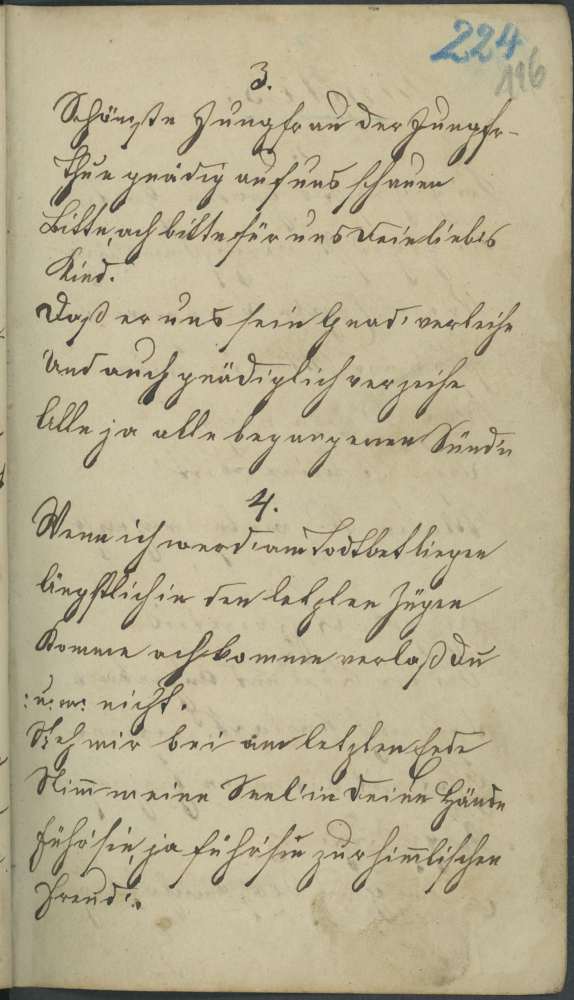 224
116
3.
Schönste Jungfrau der Jungfr-
Thue gnädig auf uns schauen
Bitte, ach bitte für uns dein liebes
Kind.
Daß er uns sein Gnad' verleihe
Und auch gnädiglich verzeihe
Alle ja alle begangenen Sünd'n
4.
Wenn ich werd' am Todtbet liegen
Ängstlich in den letzten Zügen
Komme ach komme verlaß du
nicht.
Steh mir bei am letzten Ende
Nim̄ meine Seel' in deine Hände
Führ' sie, ja führ' sie zur him̄lischen
Freud'.